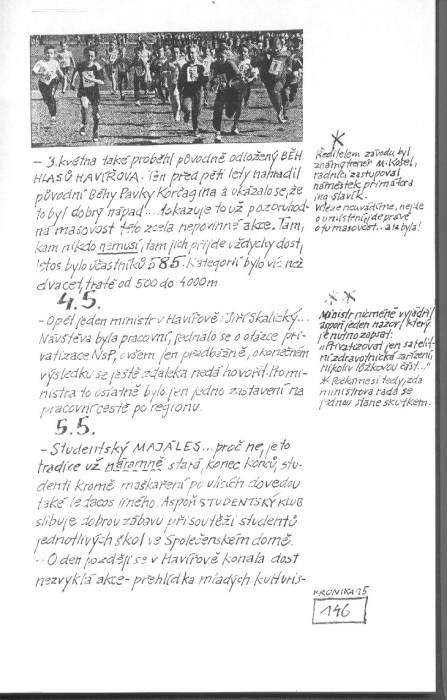 - 3. května také proběhl původně odložený BĚH
HLASŮ HAVÍŘOVA. Ten před pěti lety nahradil
původní Běhy Pavky Korčagina a ukázalo se, že
to byl dobrý nápad... dokazuje to už pozoruhod-
ná masovost této zcela nepovinné akce. Tam,
kam nikdo nemusí, tam jich přijde vždycky dost,
letos bylo účastníků 585. Kategorií bylo víc než
dvacet, tratě od 500 do 4000m
4.5.
- Opět jeden ministr v Havířově: Jiří Skalický...
Návštěva byla pracovní, jednalo se o otázce pri-
vatizace NsP, ovšem jen předběžně, o konečném
výsledku se ještě zdaleka nedá hovořit. I to mi-
nistra to ostatně bylo jen jedno zastavení na
pracovní cestě po regionu.
5.5.
- Studentský MAJÁLES... proč ne, je to
tradice už náramně stará, konec konců, stu-
denti kromě maškaření po ulicích dovedou
také ledacos jiného. Aspoň STUDENTSKÝ KLUB
slibuje dobrou zábavu při soutěži studentů
jednotlivých škol ve Společenském domě.
.. O den později se v Havířově konala dost
nezvyklá akce - přehlídka mladých kulturis-
*
Ředitelem závodu byl
známý trenér M. Kotel,
radnici zastupoval
náměstek primátora
ing. Slavík.
Vítěze neuvádíme, nejde
o umístění, jde právě
o tu masovost... a ta byla!
**
Ministr nicméně vyjádřil
aspoň jeden názor, který
je nutno zapsat:
"Privatizovat jen satelit-
ní zdravotnická zařízení,
nikoliv lůžkovou část..."
* Počkáme si tedy, zda
ministrova rada se
jednou stane skutkem.
KRONIKA 95
146